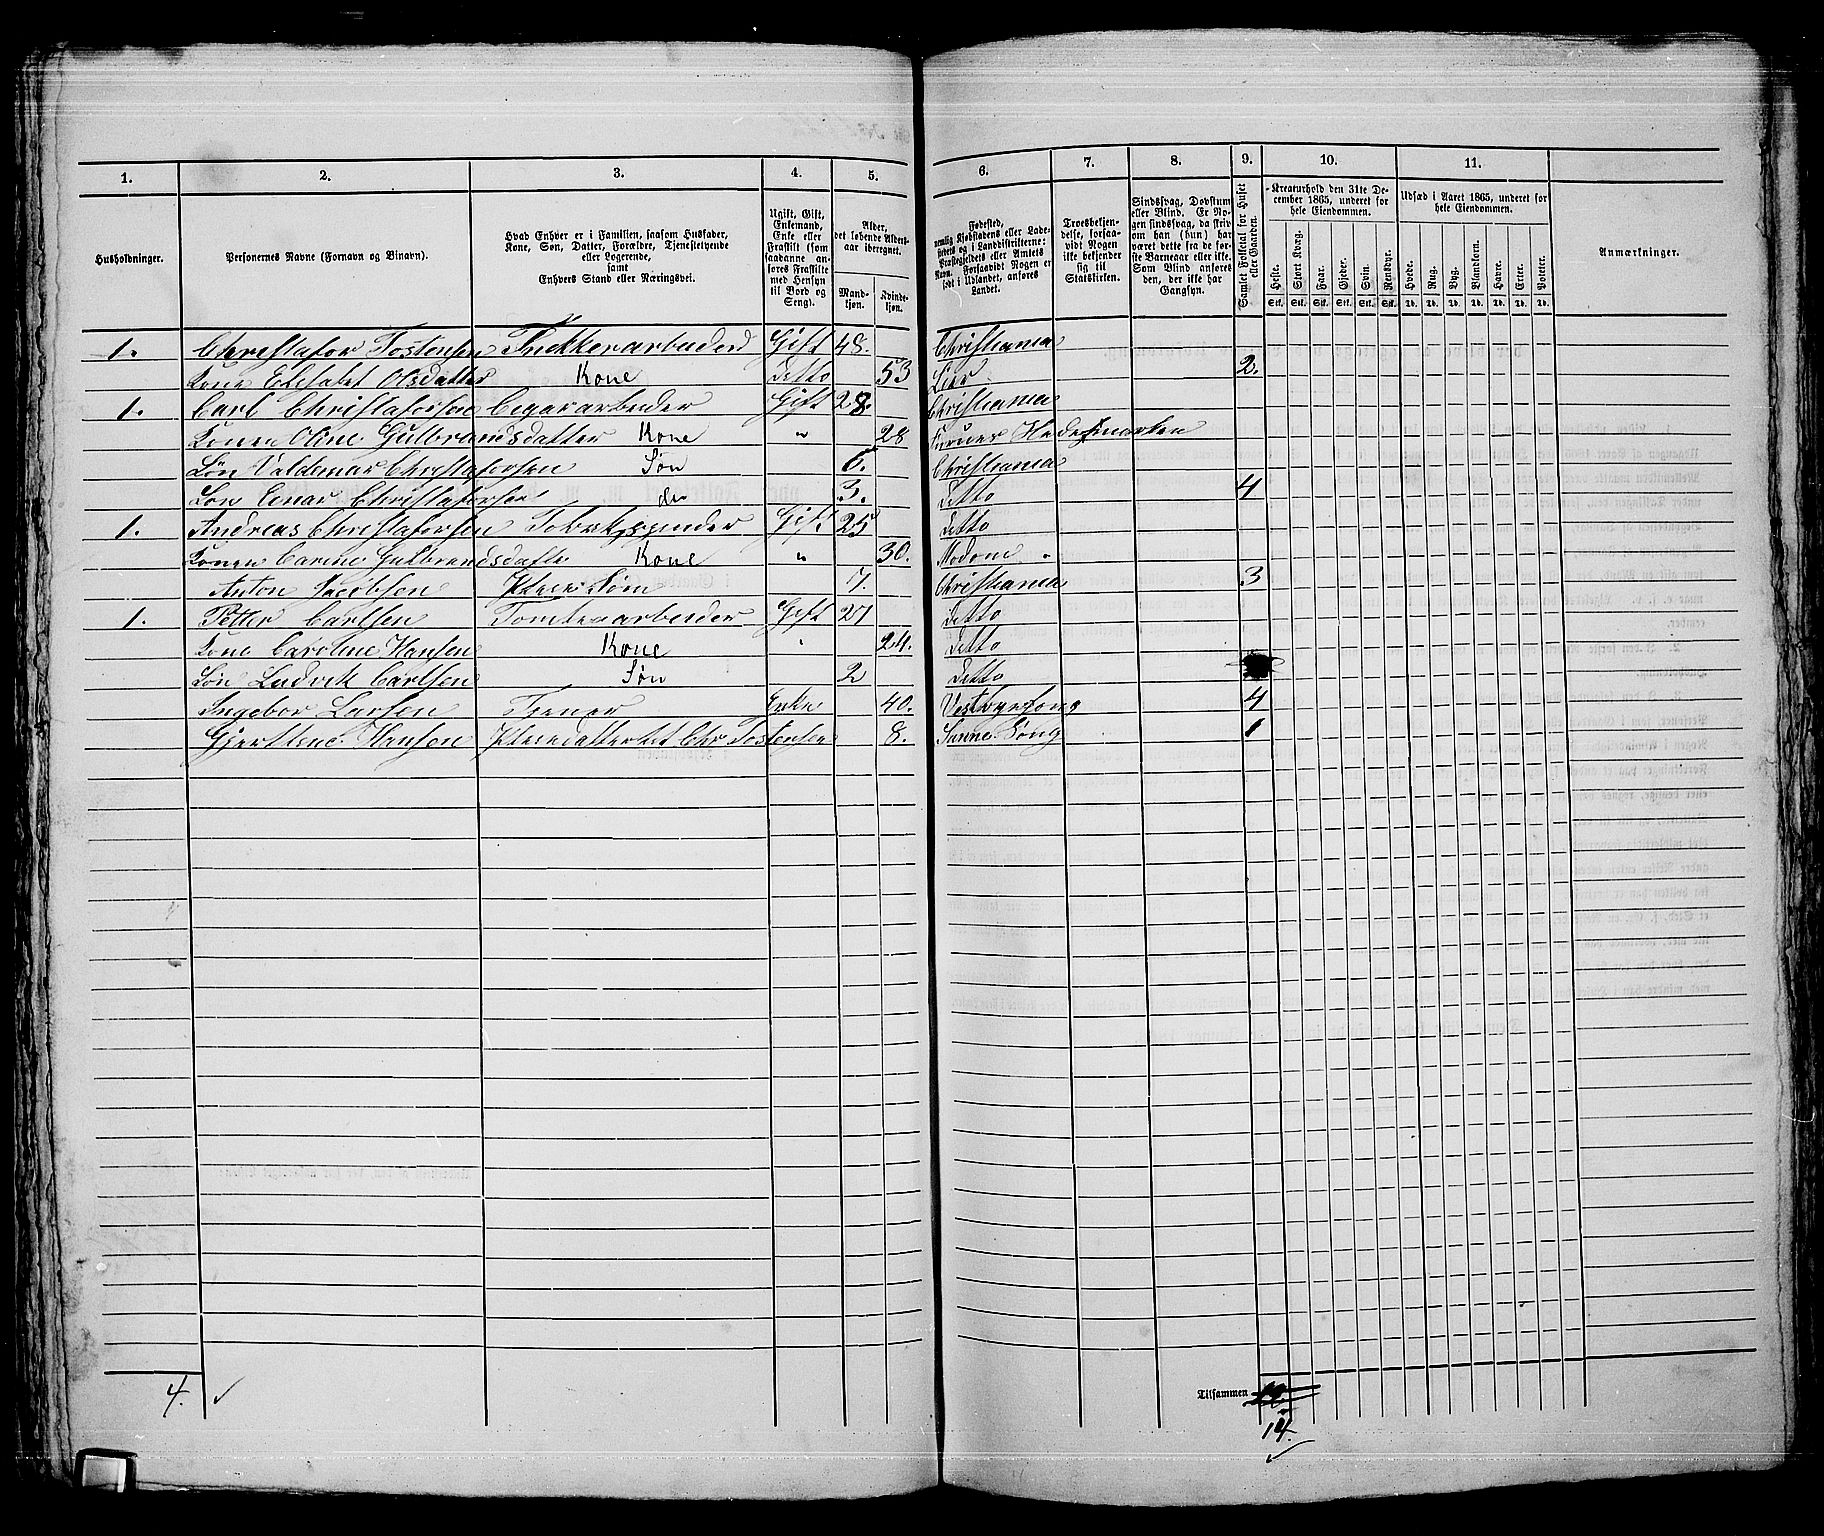 1. 2. 3. 4. 5. 6. 7. 8. 9. 10. 11.
Husholdninger.
Personernes Navne (Fornavn og Binavn).
Hvad Enhver er i Familien, saasom Husfader,
Kone, Søn, Datter, Forældre, Tjenestetyende
eller Logerende,
samt
Enhvers Stand eller Næringsvei.
Ugift, Gift,
Enkemand,
Enke eller
Fraskilt (som
saadanne an-
føres Fraskilte
med Hensyn
til Bord og
Seng).
Alder,
det løbende Alders-
aar iberegnet.
Mand-
kjøn.
Kvinde-
kjøn.
Fødested,
nemlig Kjøbstadens eller Lade-
stedets og i Landdistrikterne:
Præstegjeldets eller Amtets
Navn. Forsaavidt Nogen er
født i Udlandet, anføres
Landet.
Troesbekjen-
delse, forsaa-
vidt Nogen
ikke bekjender
sig til
Statskirken.
Sindssvag, Døvstum
eller Blind. Er No-
gen sindssvag, da skriv
om han (hun) har
været dette fra de før-
ste Barneaar eller ikke.
Som Blind anføres
den, der ikke har
Gangsyn.
Samlet Folketal for Huset
eller Gaarden.
Kreaturhold den 31te De-
cember 1865, underet for
hele Eiendommen.
Heste. Stort Kvæg. Faar. Gjeder. Svin. Rensdyr.
Stk. Stk. Stk. Stk. Stk. Stk.
Udsæd i Aaret 1865, underet for
hele Eiendommen.
Hvede. Rug. Byg. Blandkorn. Havre. Erter. Poteter.
Td. Td. Td. Td. Td. Td. Td.
Anmærkninger.
1. Christafor Tostensen Snekkerarbeider Gift 48. Christiania
Kone Elisabet Olsdatter Kone Ditto 53 Lier 2.
1. Carl Christaforsen Cigararbeider Gift 28. Christiania
Konen Oline Gulbrandsdatter Kone " 28 Hedesmarken
Søn Valdemar Christaforsen Søn 6. Christiania
Søn Einar Christaforsen do 3. Ditto 4
1. Andreas Christaforsen Tobakspinder Gift 25 Ditto
Konen Carine Gulbrandsdatte Kone " 30. Modom
Anton Jacobsen Pleie Søn 7. Christiania 3
1. Petter Carlsen Tomtearbeider Gift 27 Ditto
Kone Caroline Hansen Kone " 24. Ditto
Søn Ludvik Carlsen Søn 2 Ditto
Ingebor Larsen Tjener Enke 40. 4
Gjertine Hansen Pleiedatter Chr Tostensen 8. 1
4. ✓
Tilsammen
14.
✓